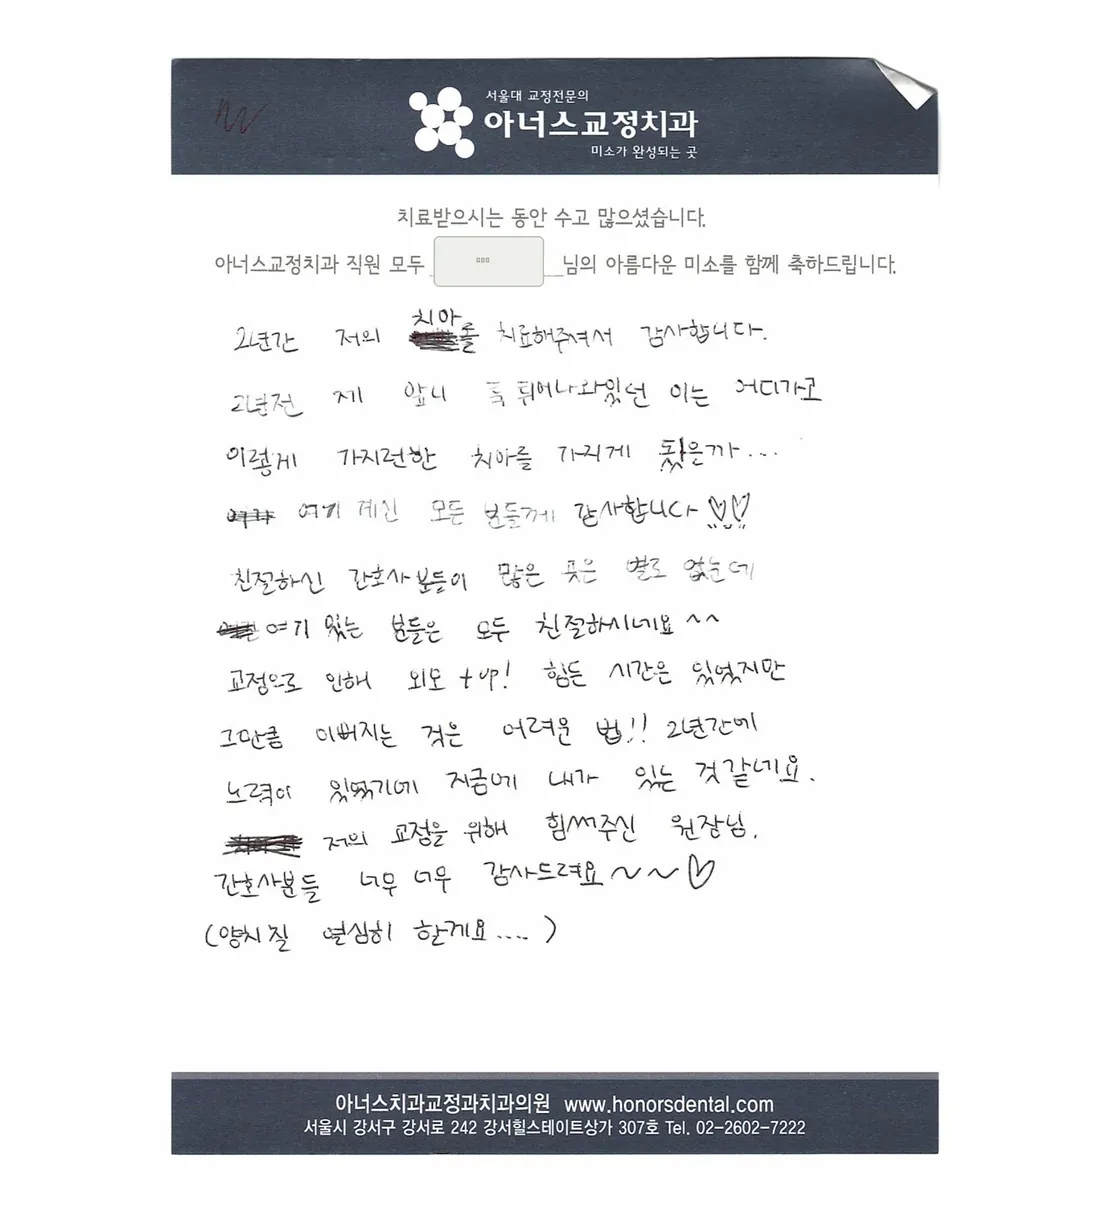 서울대 교정전문의
아너스교정치과
미소가 완성되는 곳
치료받으시는 동안 수고 많으셨습니다.
아너스교정치과 직원 모두 님의 아름다운 미소를 함께 축하드립니다.
2년간 저의 치아를 치료해주셔서 감사합니다.
2년전 제 앞니 툭 튀어나와있던 이는 어디가고
이렇게 가지런한 치아를 가지게 됐은까...
여기 계신 모든 분들께 감사합니다♡♡
친절하신 간호사분들이 많은 곳은 별로 없는데
여기 있는 분들은 모두 친절하시네요^^
교정으로 인해 외모 +up! 힘든 시간은 있었지만
그만큼 이뻐지는 것은 어려운 법!! 2년간에
노력이 있었기에 지금에 내가 있는 것 같네요.
저의 교정을 위해 힘써주신 원장님,
간호사분들 너무 너무 감사드려요~~♡
(양치질 열심히 할게요....)
아너스치과교정과치과의원 www.honorsdental.com
서울시 강서구 강서로 242 강서힐스테이트상가 307호 Tel. 02-2602-7222